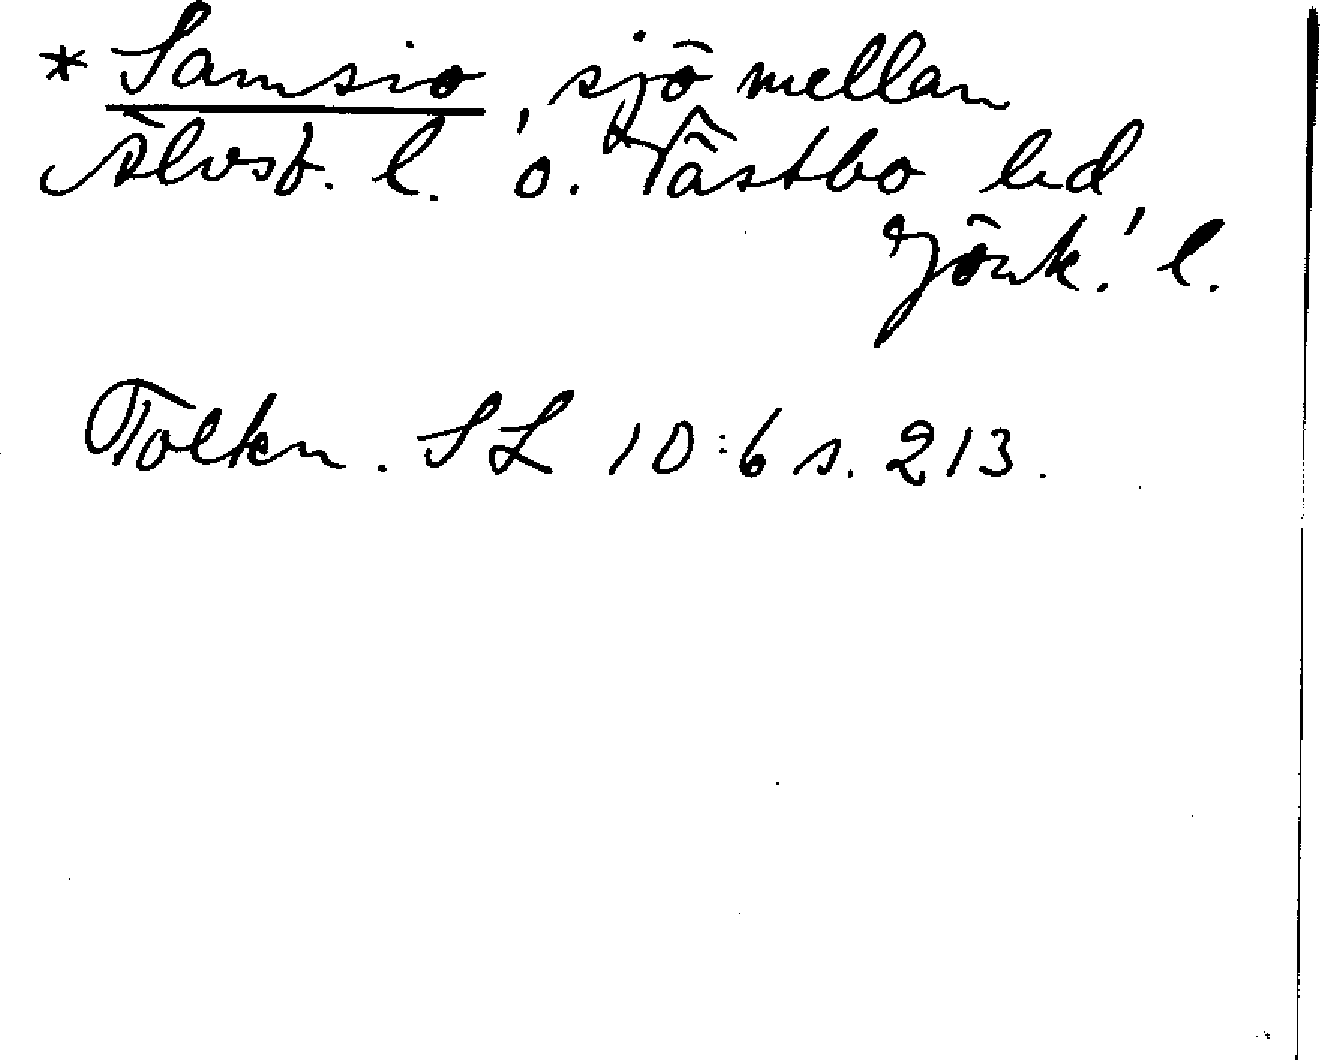 * Samsio, sjö mellan
Älvsb. l. o. Västbo hd,
Jönk. l.
Tolkn. SL 10:6 s. 213.